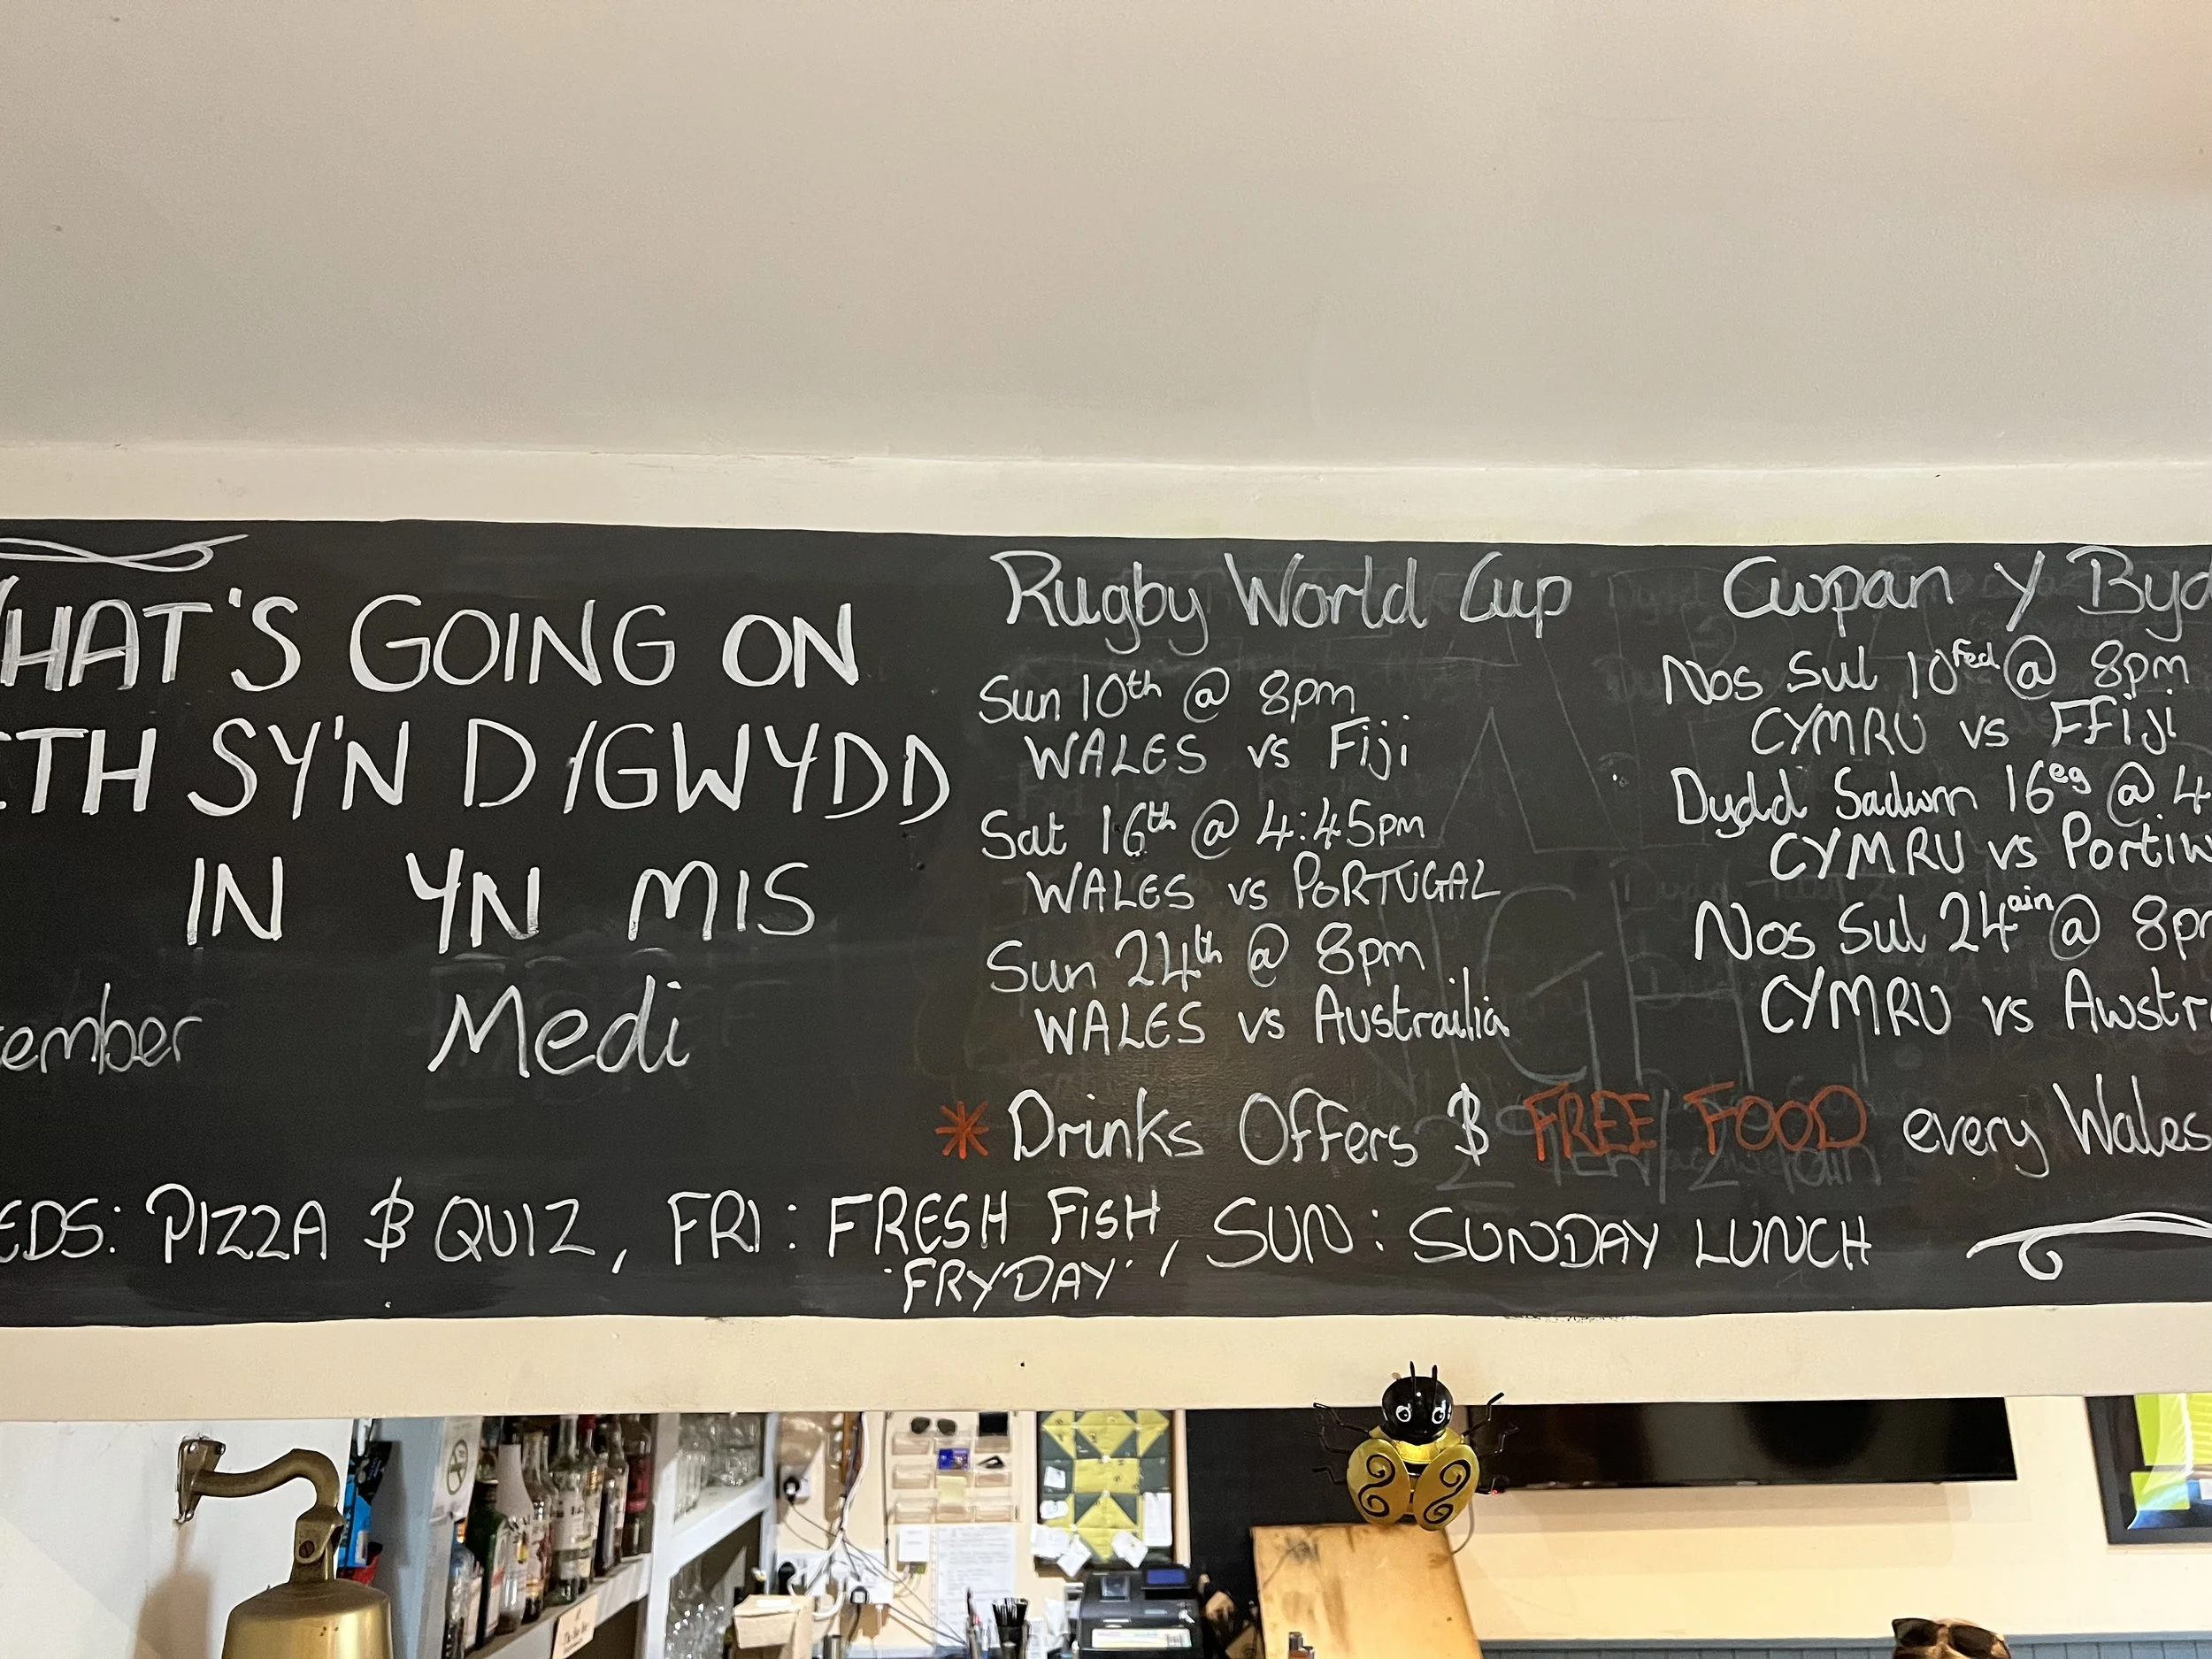 WHAT'S GOING ON
ETH SY'N DIGWYDD
IN YN MIS
tember Medi
Rugby World Cup
Sun 10th @ 8pm
WALES vs Fiji
Sat 16th @ 4:45pm
WALES vs PORTUGAL
Sun 24th @ 8pm
WALES vs Austrailia
Cwpan y Byd
Nos Sul 10fed @ 8pm
CYMRU vs FFiji
Dydd Sadwrn 16eg @ 4
CYMRU vs Portiw
Nos Sul 24ain @ 8pm
CYMRU vs Awstr
* Drinks Offers & FREE FOOD every Wales
EDS: PIZZA & QUIZ, FRI: FRESH FISH, SUN: SUNDAY LUNCH
'FRYDAY'